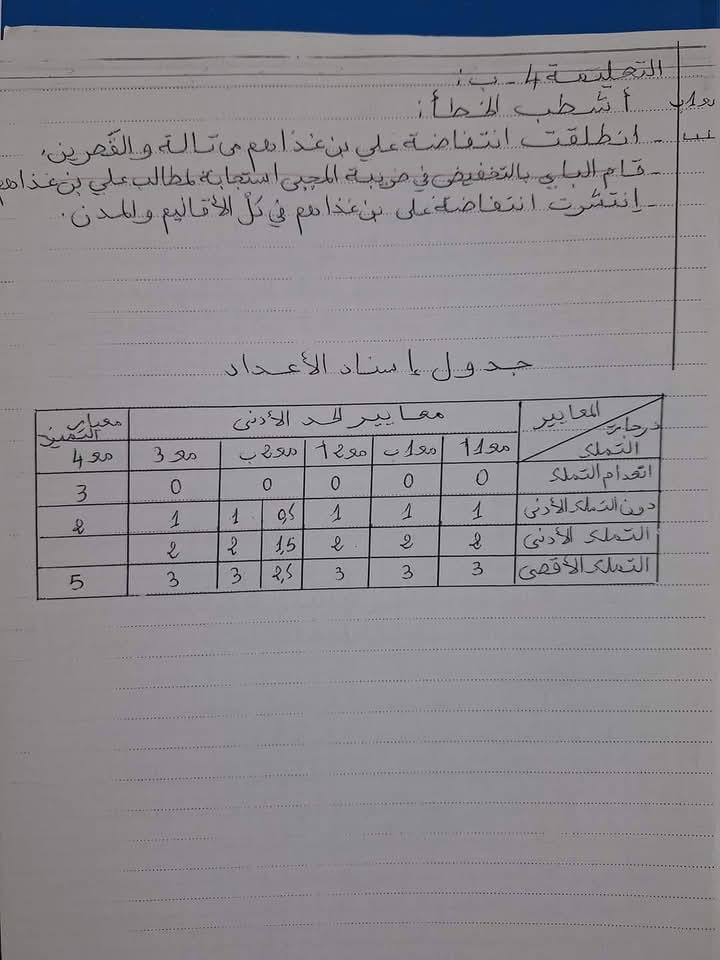 التعليمة 4 - ب:
مع1ب أشطب الخطأ:
- انطلقت انتفاضة علي بن غذاهم من تالة والقصرين.
- قام الباي بالتخفيض في ضريبة المجبى استجابة لمطالب علي بن غذاهم
- إنتشرت انتفاضة علي بن غذاهم في كلّ الأقاليم والمدن.
جدول إسناد الأعداد
المعايير درجات التملك معايير الحد الأدنى معيار التميز
مع1أ مع1ب مع2أ مع2ب مع3 مع4
انعدام التملك 0 0 0 0 0 3
دون التملك الأدنى 1 1 1 0,5 1 1 2
التملك الأدنى 2 2 2 1,5 2 2
التملك الأقصى 3 3 3 2,5 3 3 5